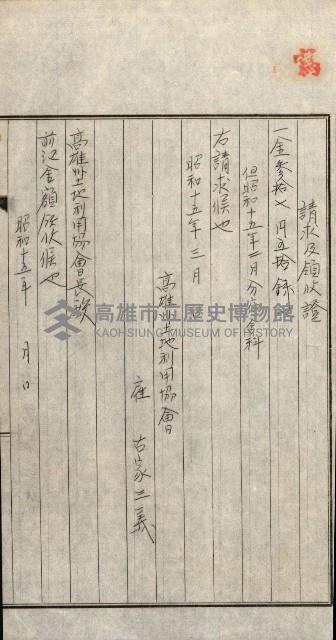 寫
請求及領收證
一金參拾七円五拾錢
但昭和十五年二月分
右請求候也
昭和十五年三月
高雄州土地利用協會
雇 古家二義
高雄州土地利用協會長殿
前記金額領收候也
昭和十五年 月 日
高雄市立歷史博物館
KAOHSIUNG MUSEUM OF HISTORY